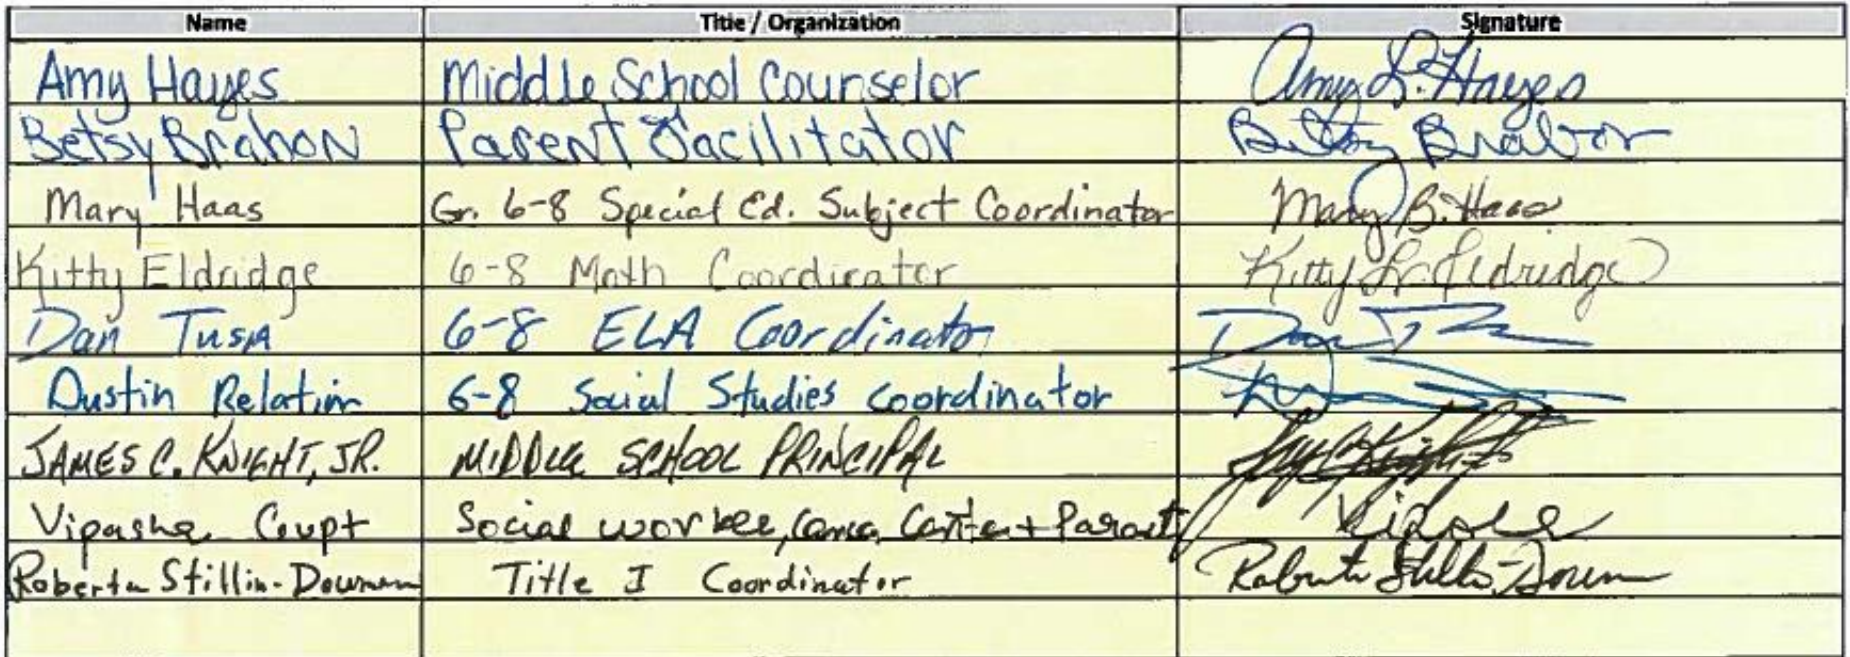 Name Title / Organization Signature
Amy Hayes Middle School Counselor Amy L. Hayes
Betsy Brahon Parent Facilitator Betsy
Mary Haas Gr. 6-8 Special Ed. Subject Coordinator Mary B. Haas
Kitty Eldridge 6-8 Math Coordinator Kitty L. Eldridge
Dan Tusa 6-8 ELA Coordinator Dan
Dustin Relation 6-8 Social Studies Coordinator
JAMES C. KNIGHT, JR. MIDDLE SCHOOL PRINCIPAL
Social worker, + Parent
Roberta Stillin-Downan Title I Coordinator